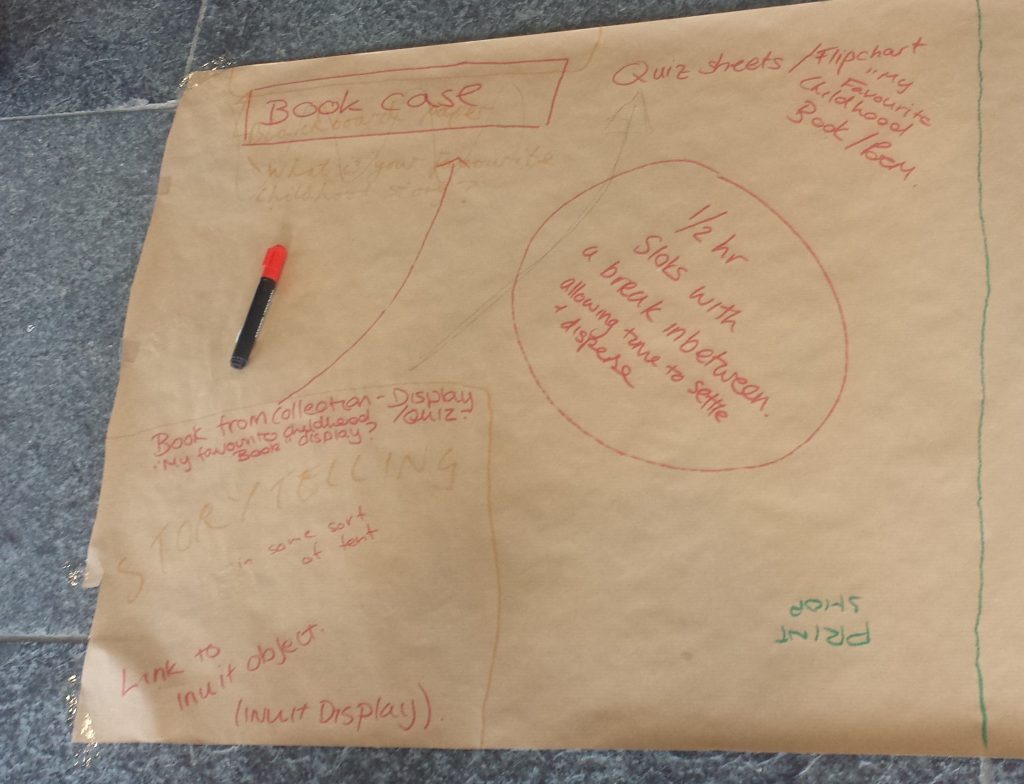 Book case
"What is your favourite
childhood story?
Quiz sheets / Flipchart
"My
Favourite
Childhood
Book / Poem.
1/2 hr
Slots with
a break inbetween.
allowing time to settle
+ disperse
Book from Collection - Display
/Quiz?
"My favourite childhood
Book" display?
STORYTELLING
in some sort
of tent
Link to
inuit object.
(Inuit Display).
PRINT
SHOP